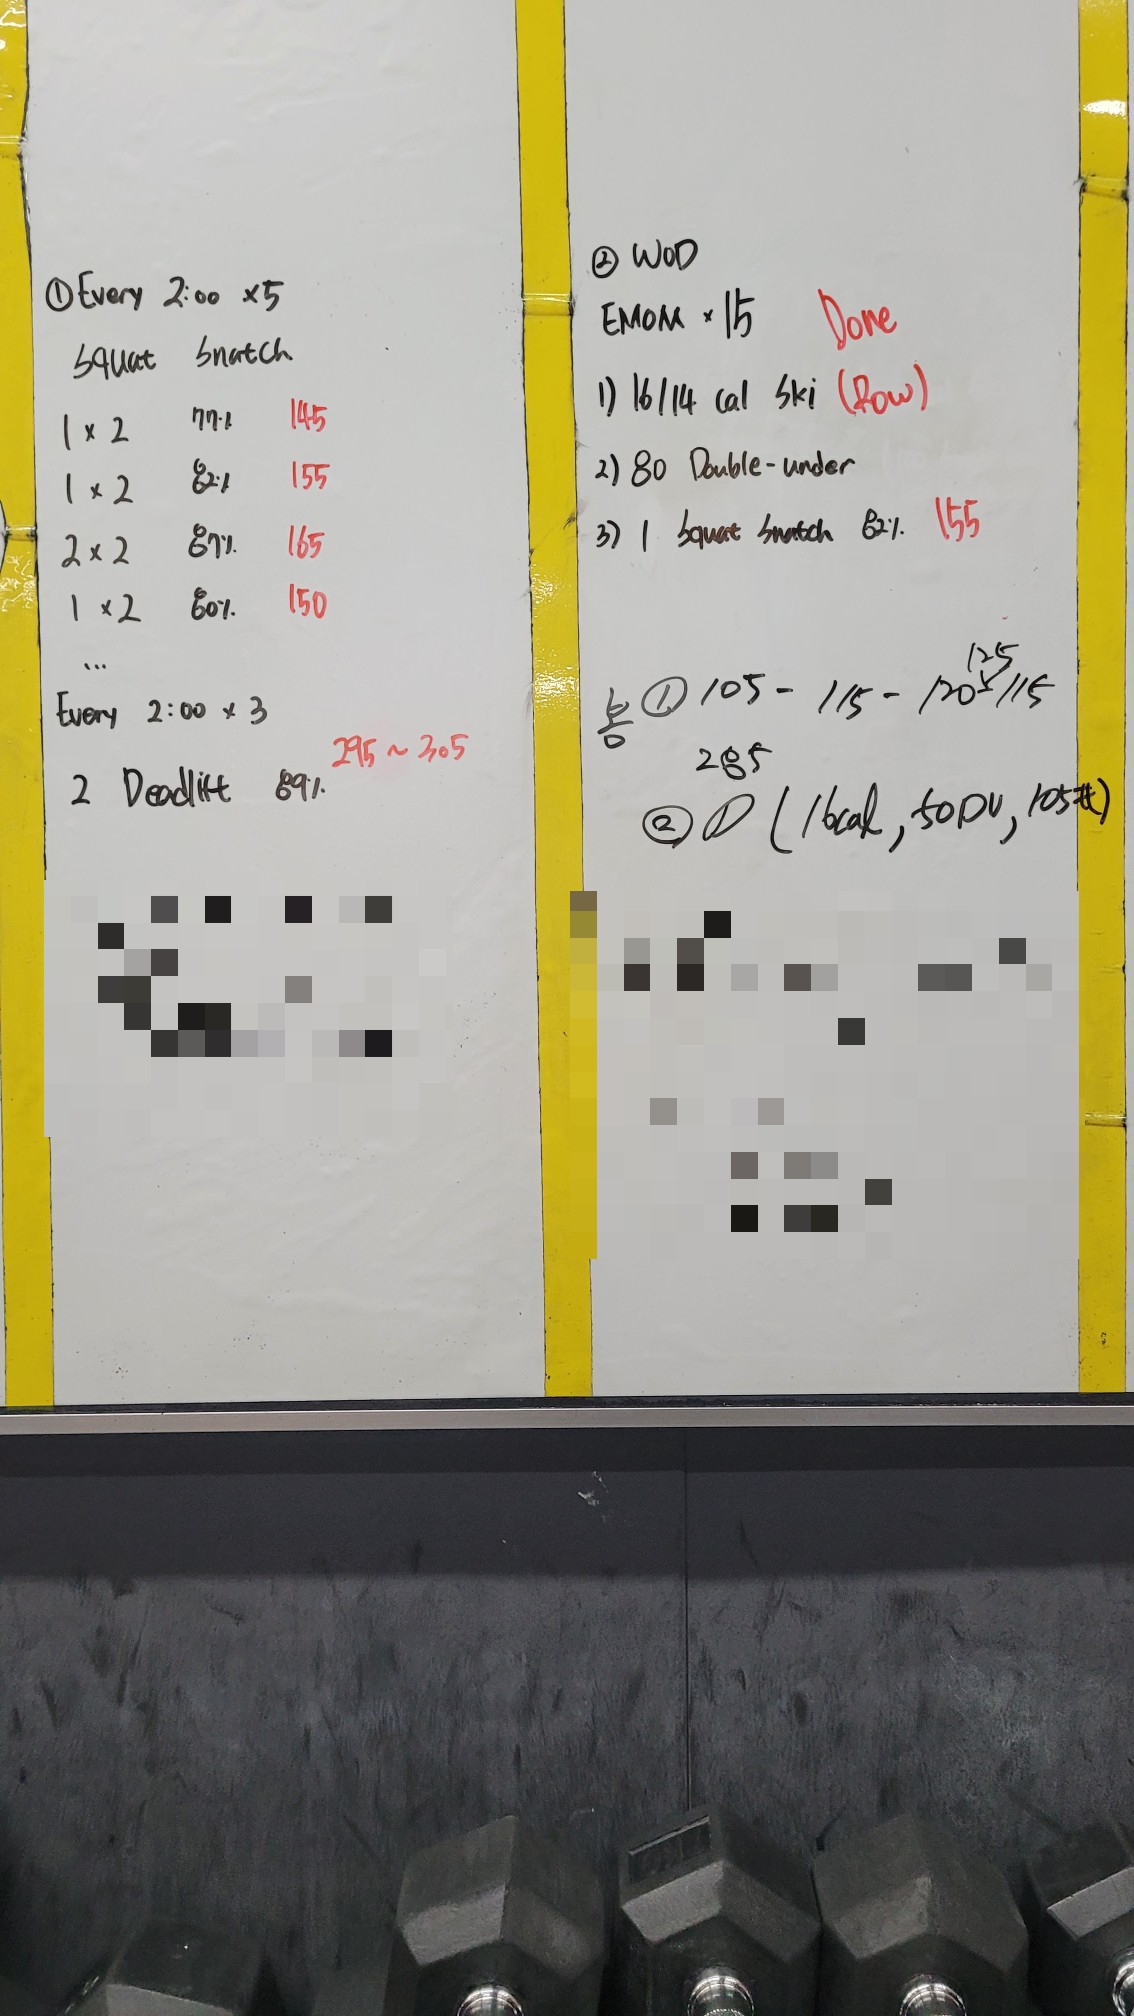 ① Every 2:00 ×5
Squat Snatch
1 × 2 77% 145
1 × 2 82% 155
2 × 2 87% 165
1 × 2 80% 150
...
Every 2:00 × 3
295 ~ 305
2 Deadlift 89%
② WOD
EMOM × 15 Done
1) 16/14 cal Ski (Row)
2) 80 Double-under
3) 1 Squat Snatch 82% 155
125
봉 ① 105 - 115 - 120 115
285
② (16cal, 50DU, 105#)